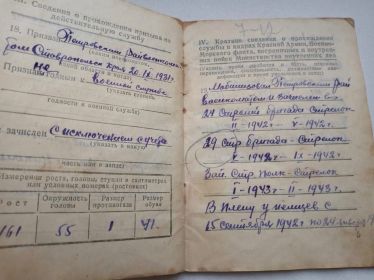 III. Сведения о прохождении призыва на
действительную службу
18. Призван Петровским Райвоенкома-
том Ставрополск края 20.IX.1931г.
Признан годным к военной службе
годности к военной службе)
зачислен с исключением с учета
(указать в какую
часть или в запас)
Измерения роста, головы, ступни в сантиметрах
или условных номерах (ростовках)
Рост
Окружность головы
Размер противогаза
Размер обуви
161
55
1
41
IV. Краткие сведения о прохождении
службы в кадрах Красной Армии, Военно-
Морского флота, пограничных и внутрен-
них войск Министерства внутренних дел
Мобилизован Петровским Рай
военкоматом и зачислен в
24 Стрелк бригада Стрелок
II-1942г – V-1942г.
29 Стр бригада – Стрелок
V-1942г – IX-1942г
Зап. Стр. Полк – Стрелок
I-1943г – II-1943г.
В плену у немцев с
15 сентября 1942г по 24